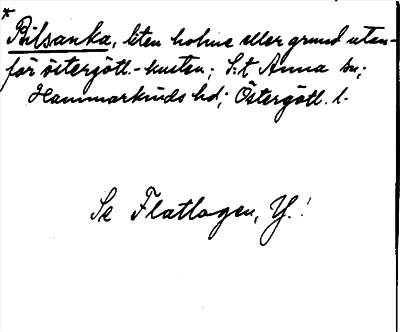 * Bilsanka, liten holme eller grund utan-
för östergötl.-kusten; S:t Anna sn;
Hammarkinds hd; Östergötl. l.
Se Flatlagen, Y.!